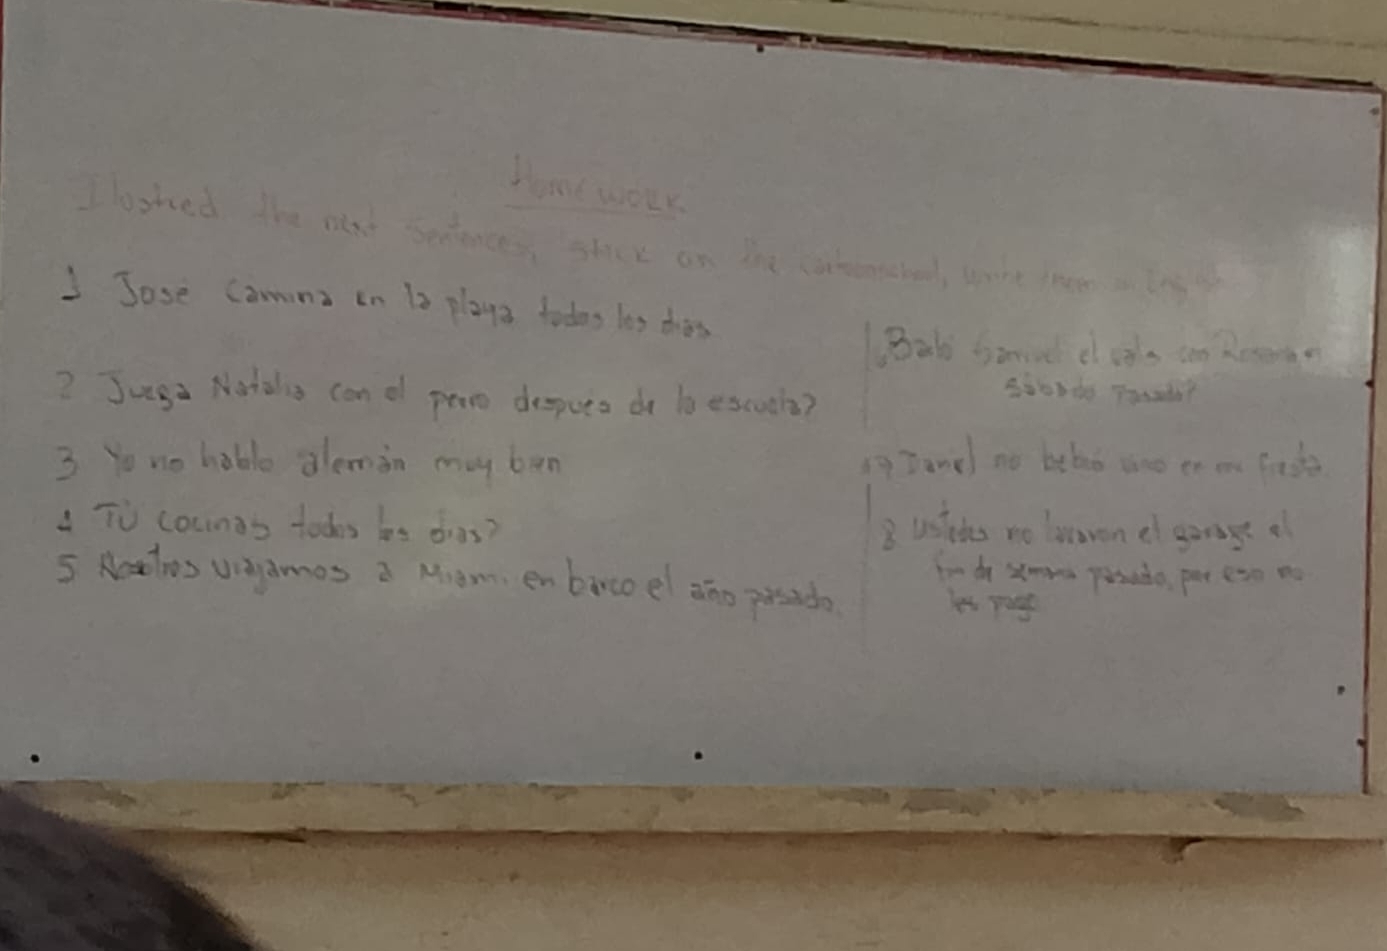 Homework
Ilostred the next sentences, stick on the cartoonschool, write them in English
1 Jose camina en la playa todos los dias
2 Juega Natalia con el perro después de la escuela?
3 Yo no hablo alemán muy bien
4 Tú cocinas todos los dias?
5 Nosotros viajamos a Miami en barco el año pasado.
6 Bailó Samuel el vals con el
sábado pasado?
7 Daniel no bebió vino en mi fiesta
8 Ustedes no lavaron el garage el
fin de semana pasado, por eso no
les pagé